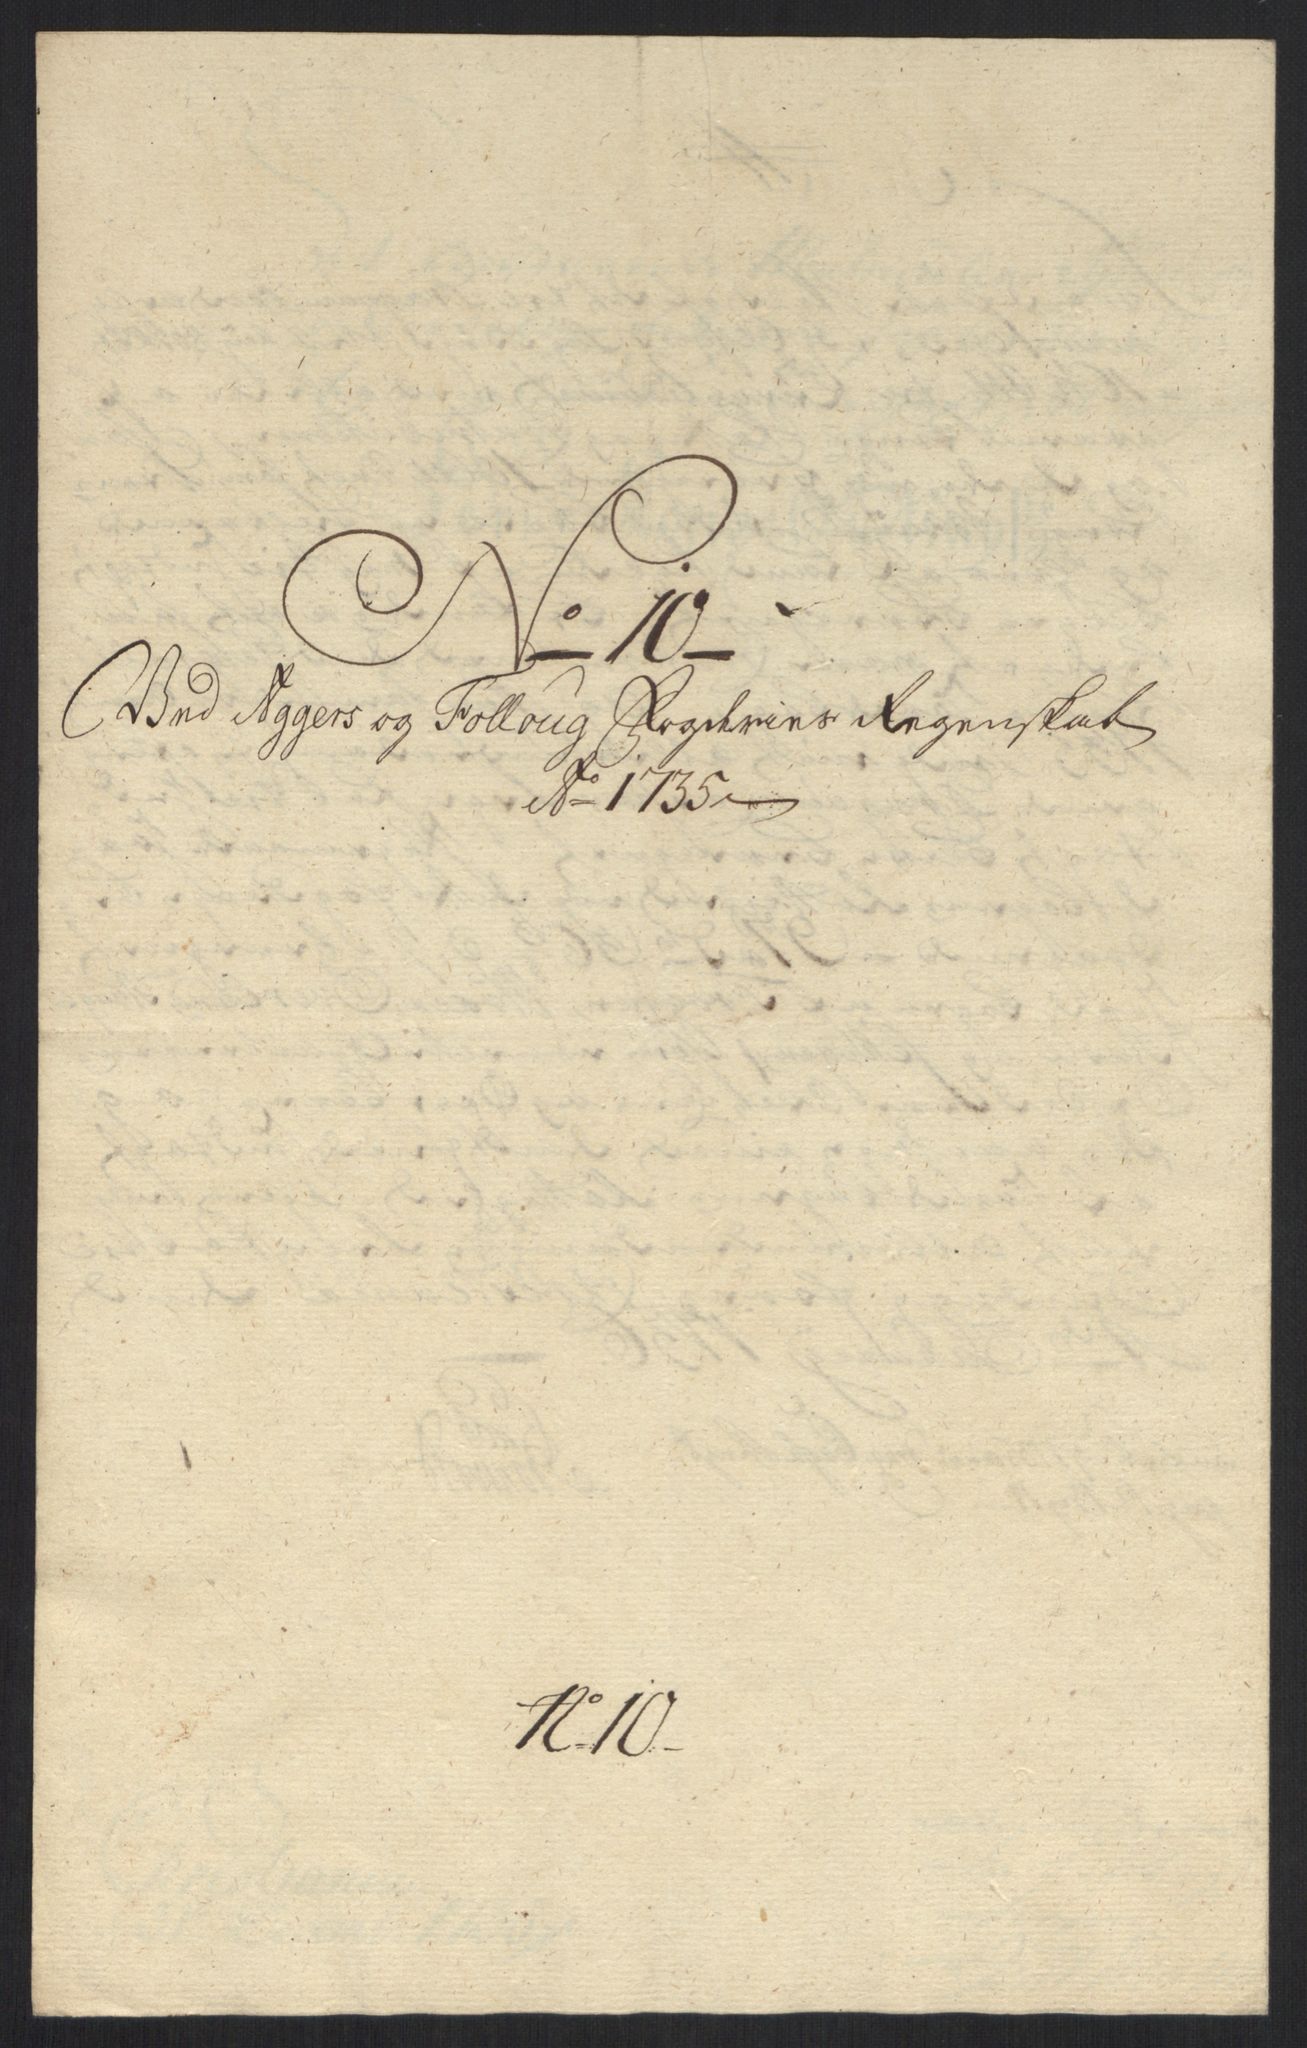 No 10
Ved Aggers og Folloug Fogderies Regenskab
Ao 1735
No 10